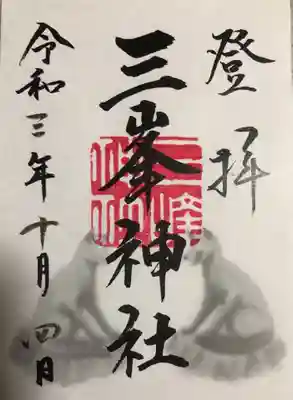 登拝
三峯神社
令和三年十月四日